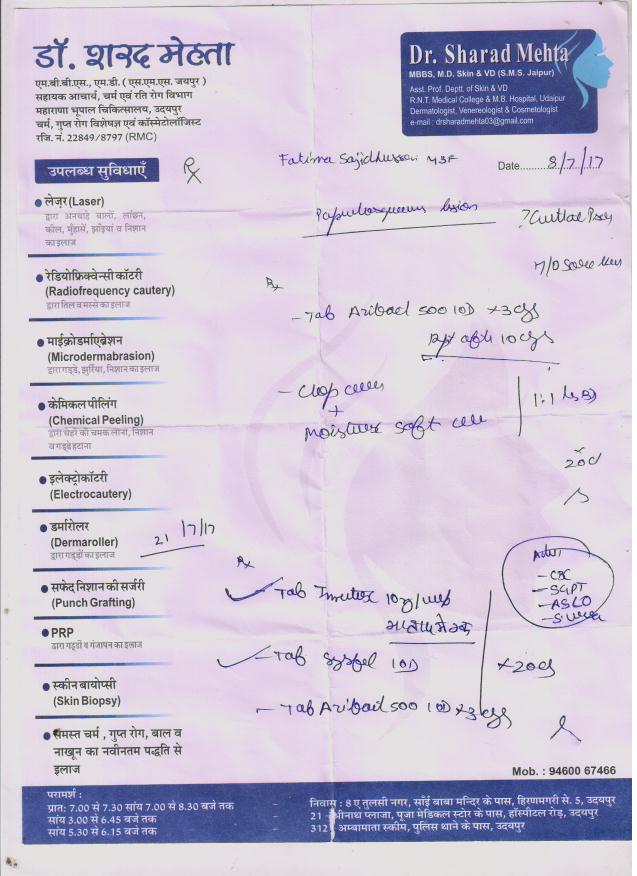 डॉ. शरद मेहता
एम.बी.बी.एस., एम.डी. ( एस.एम.एस. जयपुर )
सहायक आचार्य, चर्म एवं रति रोग विभाग
महाराणा भूपाल चिकित्सालय, उदयपुर
चर्म, गुप्त रोग विशेषज्ञ एवं कॉस्मेटोलॉजिस्ट
रजि. नं. 22849/8797 (RMC)
Dr. Sharad Mehta
MBBS, M.D. Skin & VD (S.M.S. Jaipur)
Asst. Prof. Deptt. of Skin & VD
R.N.T. Medical College & M.B. Hospital, Udaipur
Dermatologist, Venereologist & Cosmetologist
e-mail : drsharadmehta03@gmail.com
उपलब्ध सुविधाएँ
Rx
Fatima
Date 8/7/17
लेज़र (Laser)
द्वारा अनचाहे बालों, लांछन,
कील, मुँहासें, झाँइयां व निशान
का इलाज
रेडियोफ्रिक्वेन्सी कॉटरी
(Radiofrequency cautery)
द्वारा तिल व मस्से का इलाज
माईक्रोडर्माएब्रेशन
(Microdermabrasion)
द्वारा गड्डे, झुर्रिया, निशान का इलाज
केमिकल पीलिंग
(Chemical Peeling)
द्वारा चेहरे की चमक लाना, निशान
व गड्डे हटाना
इलेक्ट्रोकॉटरी
(Electrocautery)
डर्मारोलर
(Dermaroller)
द्वारा गड्डों का इलाज
सफेद निशान की सर्जरी
(Punch Grafting)
PRP
द्वारा गड्डों व गंजापन का इलाज
स्कीन बायोप्सी
(Skin Biopsy)
समस्त चर्म , गुप्त रोग, बाल व
नाखून का नवीनतम पद्धति से
इलाज
lesion
Rx
- Tab 500 10D x 3
10
+
Moisturex soft
1:1
20d
21/7/17
Rx
- CBC
- SGPT
- ASLO
Tab
- Tab 10D
x 20d
- Tab 500 10D x 3
Mob. : 94600 67466
परामर्श :
प्रात: 7.00 से 7.30 सांय 7.00 से 8.30 बजे तक
सांय 3.00 से 6.45 बजे तक
सांय 5.30 से 6.15 बजे तक
- निवास : 8 ए तुलसी नगर, साँई बाबा मन्दिर के पास, हिरणमगरी से. 5, उदयपुर
- 21 श्रीनाथ प्लाजा, पूजा मेडिकल स्टोर के पास, हॉस्पीटल रोड़, उदयपुर
- 312 अम्बामाता स्कीम, पुलिस थाने के पास, उदयपुर